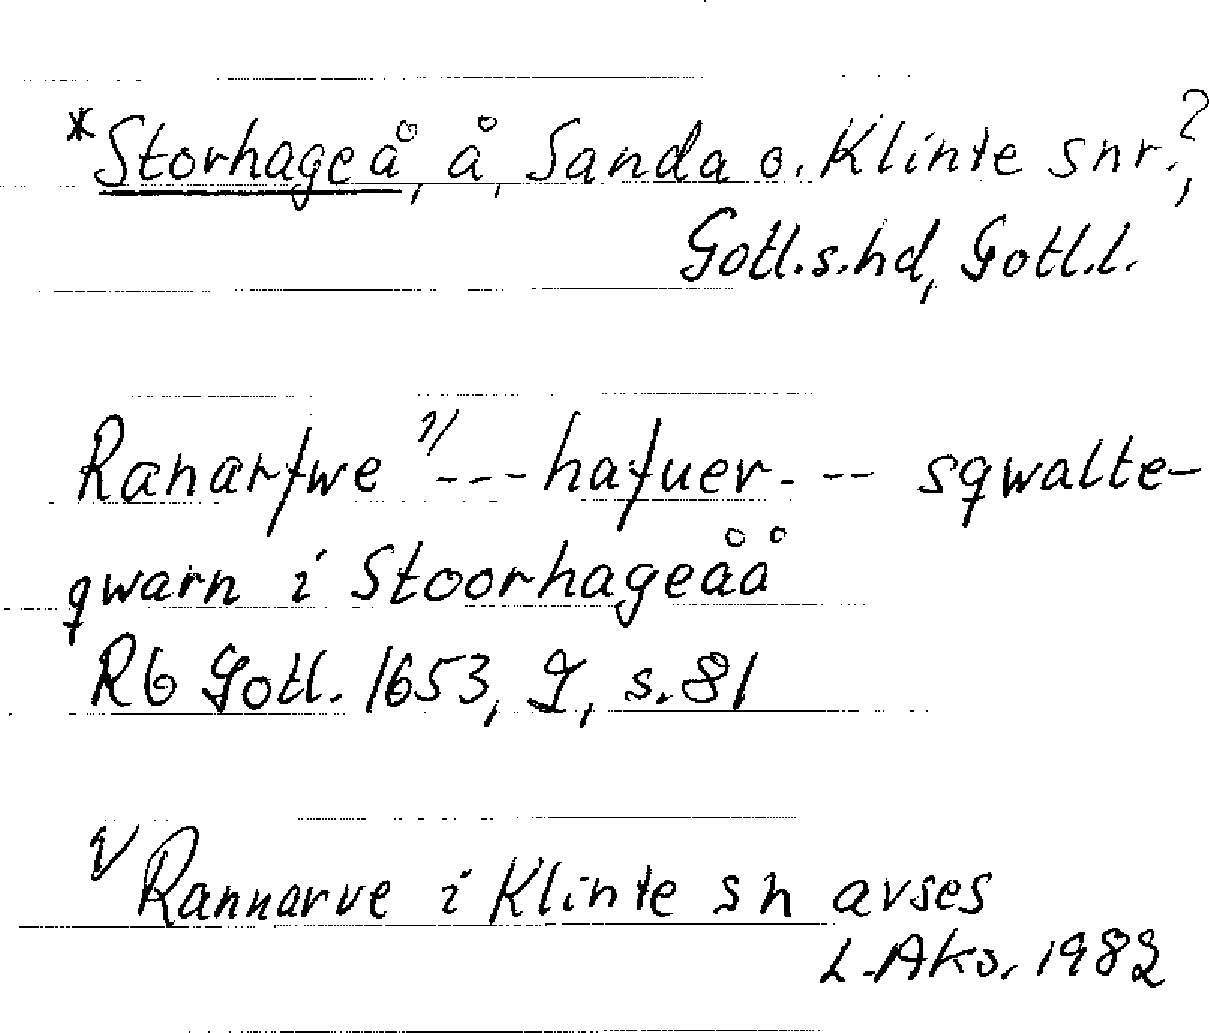 *Storhageå, å, Sanda o. Klinte snr?,
Gotl.s.hd, Gotl.l.
Ranarfwe 1) --- hafuer. -- sqwalte-
qwarn i Stoorhageåå
Rb Gotl. 1653, I, s. 81
1) Rannarve i Klinte sn avses
L-Aks. 1982